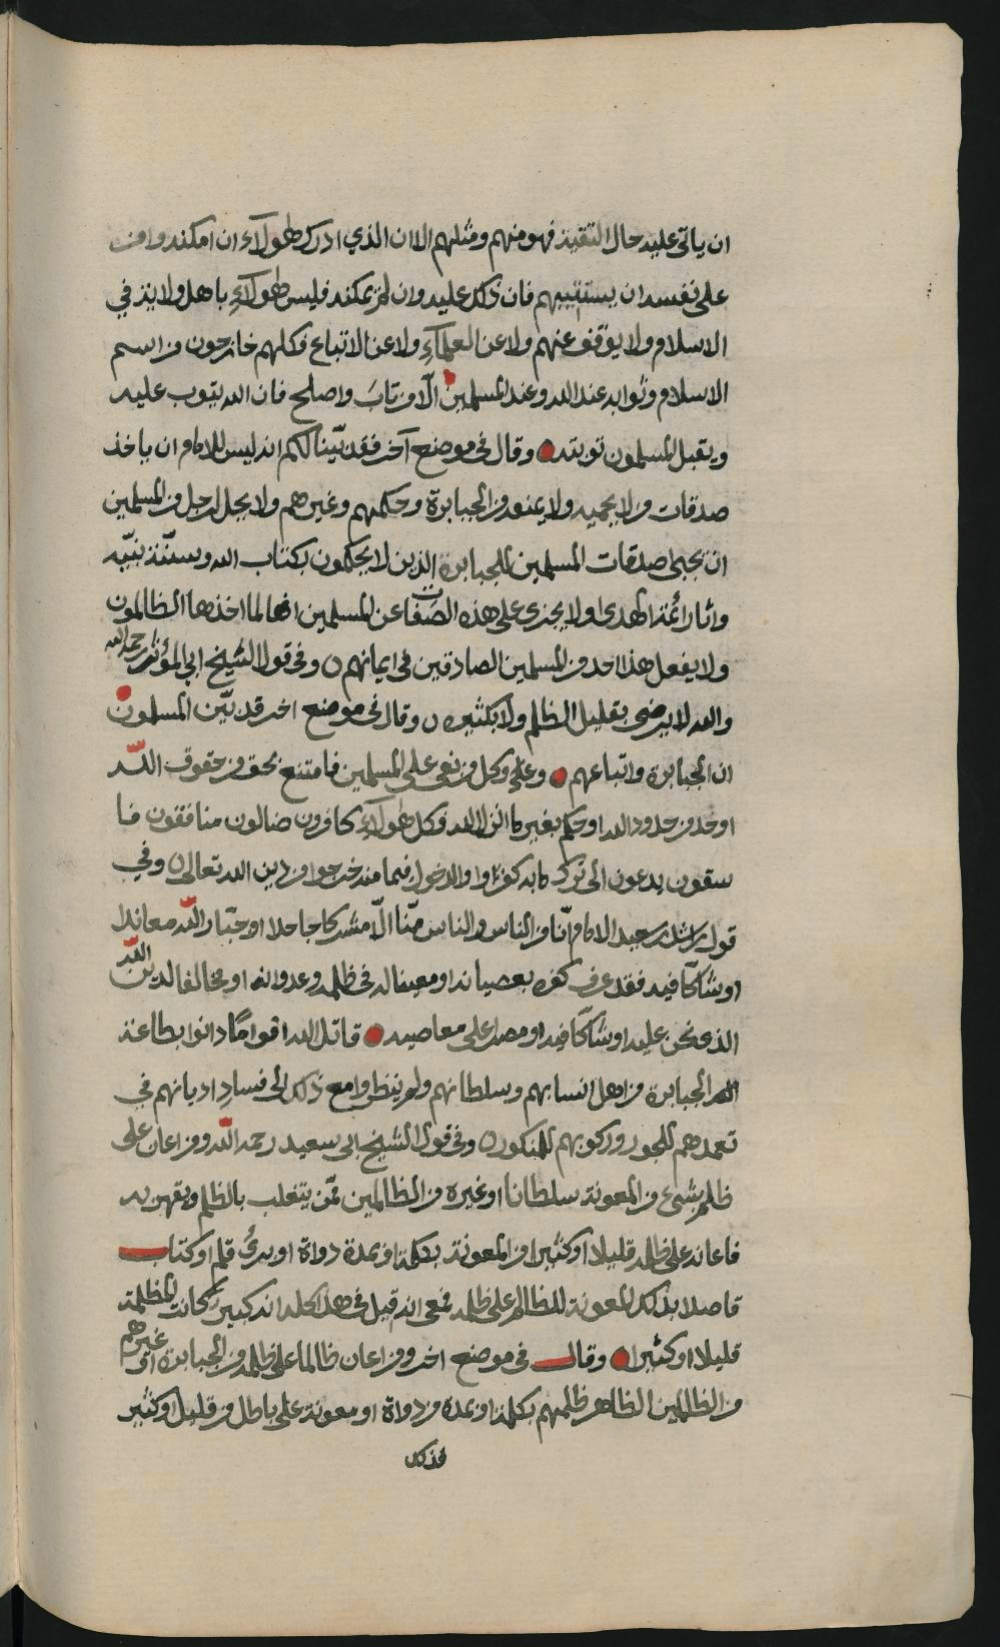 ان ياتى عليه حال التقية فهو منهم ومثلهم الا ان الذي ادرك هؤلاء ان امكنه وامن
على نفسه ان يستتيبهم فان ذلك عليه وان لم يمكنه فليس هؤلاء باهل ولاية في
الاسلام ولا يوقف عنهم ولا عن العلماء ولا عن الاتباع فكلهم خارجون من اسم
الاسلام وثوابه عند الله وعند المسلمين الا من تاب واصلح فان الله يتوب عليه
ويقبل المسلمون توبته وقال في موضع آخر فقد بيّنا لكم انه ليس للامام ان ياخذ
صدقات من لا يحميه ولا يمنعه من الجبابرة وحكمهم وغيرهم ولا يحل لرجل من المسلمين
ان يجبى صدقات المسلمين للجبابرة الذين لا يحكمون بكتاب الله وسنّة نبيّه
واثار ائمة الهدى ولا يجزى على هذه الصفة عن المسلمين اعمالها اخذها الظالمون
ولا يفعل هذا احد من المسلمين الصادقين في ايمانهم وفي قول الشيخ ابي المؤثر رحمه الله
والله لا يرضى بقليل الظلم ولا بكثيره وقال في موضع اخر قد بيّن المسلمون
ان الجبابرة واتباعهم وعلى وكل من بغى على المسلمين فامتنع بحق من حقوق الله
او حد من حدود الله او حكم بغير ما انزل الله فكل هؤلاء كافرون ضالون منافقون فا
سقون يدعون الى ترك ما به كفروا والدخول فيما منه خرجوا من دين الله تعالى وفي
قول راشد بن سعيد الامام انّا من الناس والناس منّا الّا مشركا جاحدا او جبّارا لله معاندا
او شاكّا فيه فقد عرف كفره بعصيانه او معينا له في ظلمه وعدوانه او مخالفا لدين الله
الذى نحن عليه او شاكّا فيه او مصرا على معاصيه قاتل الله اقواما دانوا بطاعة
الله الجبابرة من اهل انسابهم وسلطانهم ولم ينظروا مع ذلك الى فساد اديانهم في
تعمدهم للجور وركوبهم للمنكور وفي قول الشيخ ابي سعيد رحمه الله ومن اعان على
ظلم بشيء من المعونة سلطانا او غيره من الظالمين ممّن يتغلب بالظلم ويقهر به
فاعانه على ظلمه قليلا او كثيرا من المعونة بكلمة او بمدة دواة او برئ قلم او كتاب
قاصدا بذلك لمعونة للظالم على ظلمه فمعى انه قيل في هذا كله انه كبير كانت المظلمة
قليلا او كثيرا وقال في موضع اخر ومن اعان ظالما على ظلمه من الجبابرة او غيرهم
من الظالمين الظاهر ظلمهم بكلمة او بمدة من دواة او معونة على باطل من قليل او كثير
فذلك